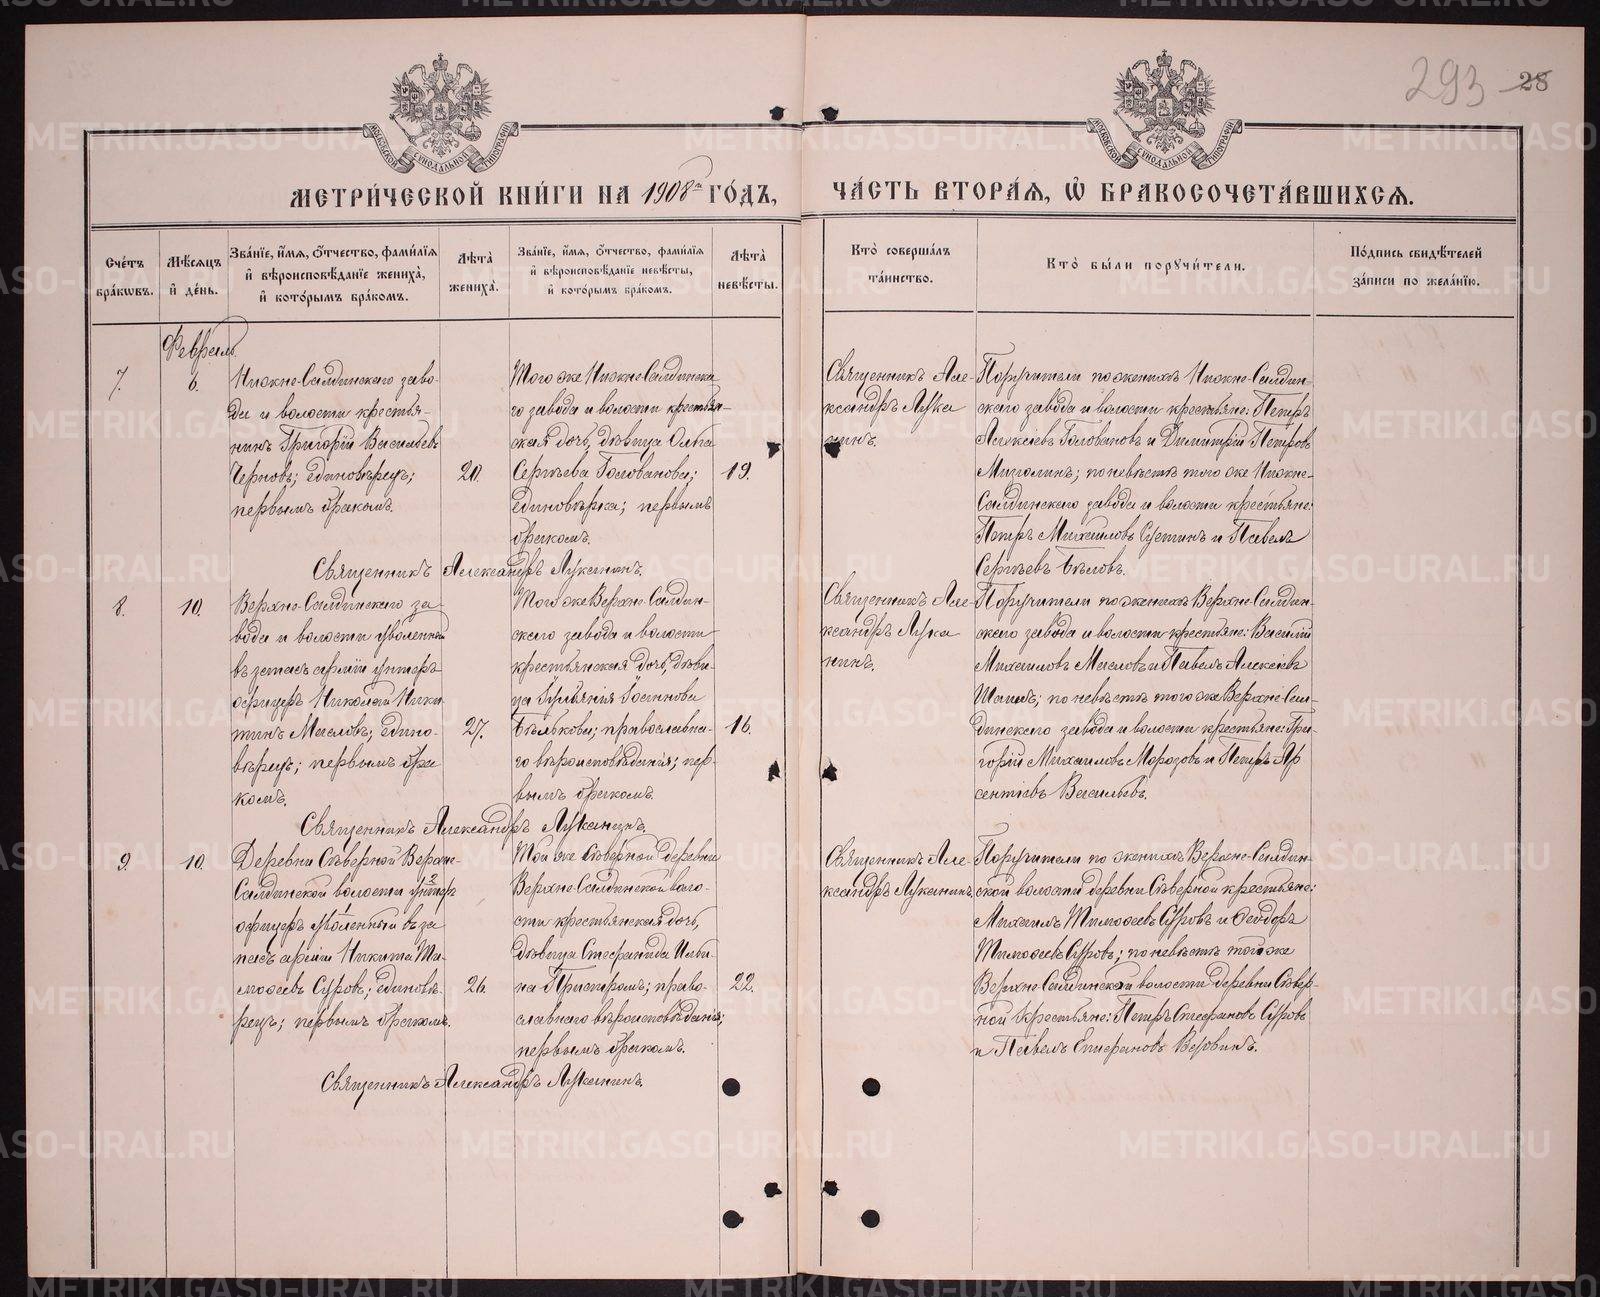 293 28
МОСКОВСКОЙ СѴНОДАЛЬНОЙ ТИПОГРАФІИ
МОСКОВСКОЙ СѴНОДАЛЬНОЙ ТИПОГРАФІИ
МЕТРИ́ЧЕСКОЙ КНИ́ГИ НА 1908й ГО́ДЪ,
ЧА́СТЬ ВТОРА́Я, Ѡ҆ БРАКОСОЧЕТА́ВШИХСѦ.
Сче́тъ бра́кѡвъ.
Мѣ́сѧцъ и҆ де́нь.
Зва́нїе, и҆́мѧ, ѻ҆́тчество, фами́лїѧ и҆ вѣроисповѣ́данїе жениха̀, и҆ кото́рымъ бра́комъ.
Лѣ́та жениха̀.
Зва́нїе, и҆́мѧ, ѻ҆́тчество, фами́лїѧ и҆ вѣроисповѣ́данїе невѣ́сты, и҆ кото́рымъ бра́комъ.
Лѣ́та невѣ́сты.
Кто̀ соверша́лъ та́инство.
Кто̀ бы́ли порꙋчи́тели.
По́дпись свидѣ́телей за́писи по жела́нїю.
Февраль.
7.
6.
Нижне-Салдинскаго заво-
да и волости крестья-
нинъ Григорій Васильевъ
Черновъ; единовѣрецъ;
первымъ бракомъ.
20.
Того же Нижне-Салдинска
го завода и волости крестьян-
ская дочь, дѣвица Ольга
Сергѣева Голованова;
единовѣрка; первымъ
бракомъ.
19.
Священникъ Але-
ксандръ Лука
нинъ.
Поручители по женихѣ Нижне-Салдин-
скаго завода и волости крестьяне: Петръ
Алексіевъ Головановъ и Димитрій Петровъ
по невѣстѣ того же Нижне-
Салдинскаго завода и волости крестьяне:
Петръ Михаиловъ и Павелъ
Сергѣевъ Бѣловъ.
Священникъ Александръ Луканинъ.
8.
10.
Верхне-Салдинскаго за-
вода и волости уволенный
въ запасъ арміи унтеръ
офицеръ Николай Ники
тинъ Масловъ; едино-
вѣрецъ; первымъ бра
комъ.
27.
Того же Верхне-Салдин-
скаго завода и волости
крестьянская дочь, дѣви-
ца
Бѣлькова; православна-
го вѣроисповѣданія; пер-
вымъ бракомъ.
16.
Священникъ Але-
ксандръ Лука
нинъ.
Поручители по женихѣ Верхне-Салдин-
скаго завода и волости крестьяне: Василій
Михаиловъ Масловъ и Павелъ Алексіевъ
по невѣстѣ того же Верхне-Сал-
динскаго завода и волости крестьяне: Гри-
горій Михаиловъ Морозовъ и Петръ Ар
сентіевъ Васильевъ.
Священникъ Александръ Луканинъ.
9.
10.
Деревни Сѣверной Верхне-
Салдинской волости унтер
офицеръ уволенный въ за
пасъ арміи Никита Ти-
моѳеевъ Суровъ; единовѣ-
рецъ; первымъ бракомъ.
26.
Той же Сѣверной деревни
Верхне-Салдинской воло-
сти крестьянская дочь,
дѣвица Стефанида Ильи-
на право-
славнаго вѣроисповѣданія;
первымъ бракомъ.
22.
Священникъ Але-
ксандръ Луканинъ.
Поручители по женихѣ Верхне-Салдин-
ской волости деревни Сѣверной крестьяне:
Михаилъ Тимоѳеевъ Суровъ и Ѳеодоръ
Тимоѳеевъ Суровъ; по невѣстѣ той же
Верхне-Салдинской волости деревни Сѣвер-
ной крестьяне: Петръ Стефановъ Суровъ
и Павелъ Епифановъ Веровинъ.
Священникъ Александръ Луканинъ.
METRIKI.GASO-URAL.RU